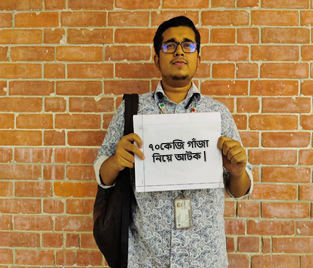 ৭০কেজি গাঁজা
নিয়ে আটক।